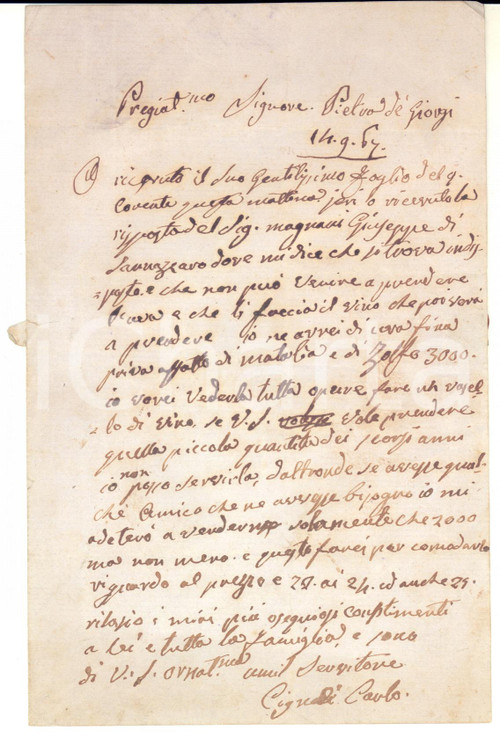 Pregiat.mo Signore. Pietro de Giorgi
14. 9. 67.
O ricevuto il suo gentilissimo foglio del 9.
corente questa mattina. jeri o ricevuto la
risposta del Sig. magnani Giuseppe di
Sannazzaro dove mi dice che si trova indi
sposto e che non può venire a prendere
l'uva e che li faccia il vino che poi verà
a prendere io ne avrei di uva fina
priva affatto di malatia e di Zolfo 3000.
io vorei vederla tutta opure fare un vasel
lo di vino se V. S. vole prendere
quella piccola quantità dei scorsi anni
io non posso servirla, daltronde se avesse qual
che Amico che ne avesse bisogno io mi
adeterò a venderne solamente che 2000
ma non meno. e questo farei per comodarlo
riguardo al prezzo e 23. ai 24. ed anche 25.
rilascio i miei più osequiosi complimenti
a lei e tutta la famiglia e sono
di V. S. ornat.ma umil Servitore
Carlo.